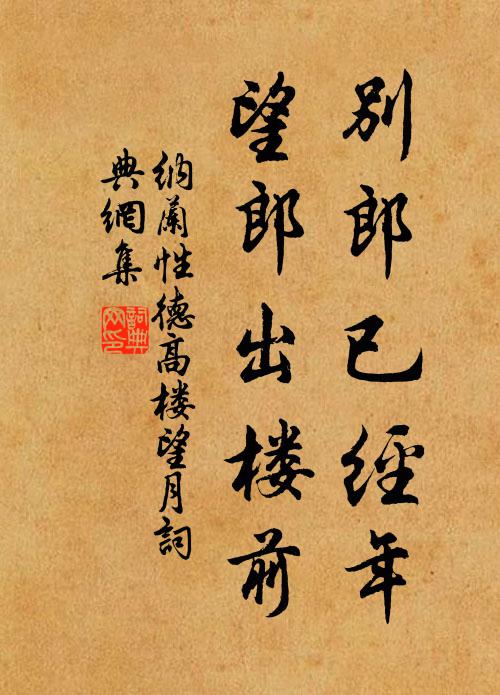 别郎已經年
望郎出楼前
纳蘭性德高楼望月詞
典網集
詞典網印